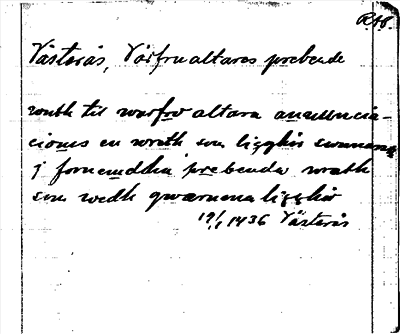 RAp.
Västerås, Vårfrualtares prebende
wreth til warfrw altara annuncia-
ciones en wreth som ligghir sunnana
j fornemdha prebenda wreth
som wedh qwærnena ligghir
19/1 1436 Västerås